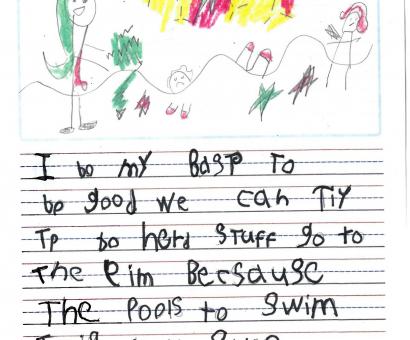 I bo my BasT To
be good we can Tiy
To bo herd sTuff go to
The Eim Becsause
The Pools to swim